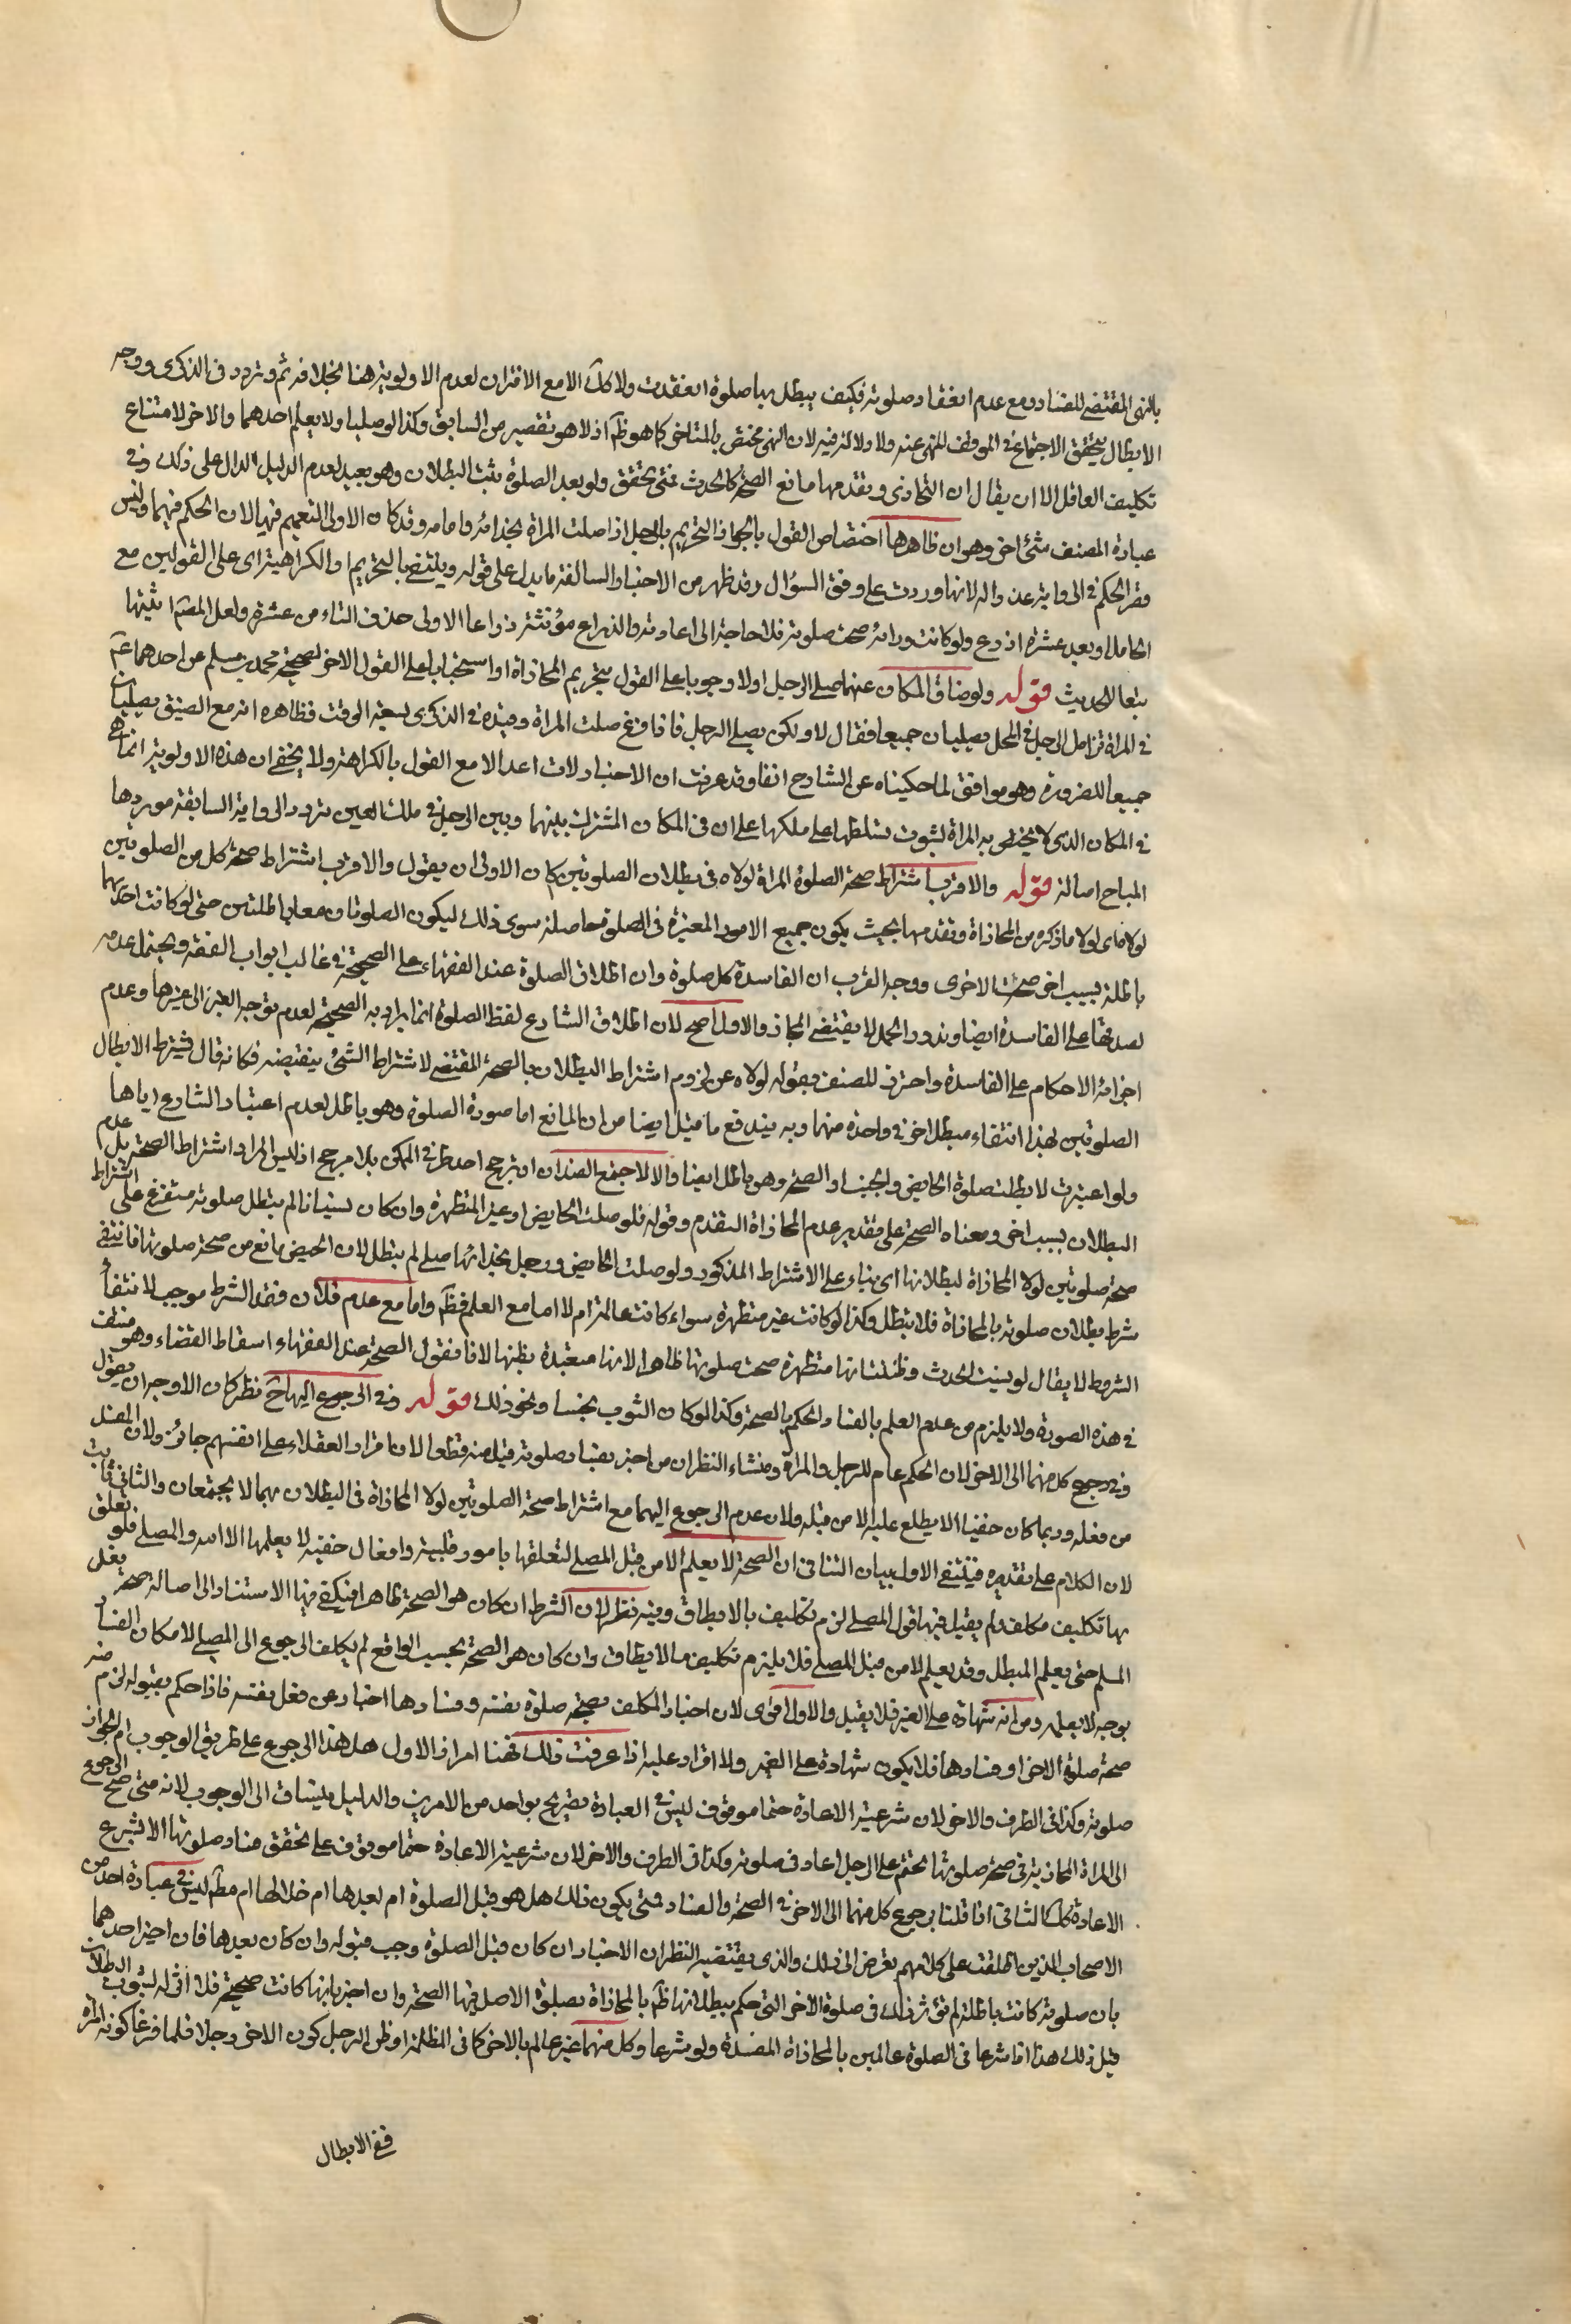 بالنهى المقتضى للفساد ومع عدم انعقاد صلوته فكيف يبطل بها صلوة انعقدت ولا كك الا مع الاقتران لعدم الاولوية هنا بخلافه ثم وتردد فى الذكرى ووجه
الابطال بتحقق الاجتماع فى الموقف المنهى عنه ولا دلالة فيه لان النهى مختص بالمتاخر كما هو ظ اذ لا هو تقصير من السابق وكذا لو صليا ولا يعلم احدهما والاخر لامتناع
تكليف الغافل الا ان يقال ان التحاذى وتقدمها مانع الصحة كالحدث فمتى تحقق ولو بعد الصلوة يثبت البطلان وهو بعيد لعدم الدليل الدال على ذلك وفى
عبارة المصنف شئ اخر وهو ان ظاهرها اختصاص القول بالجواز والتحريم بالرجل اذا صلت المراة بحذائه وامامه وقد كان الاولى التعميم فيها لان الحكم فيهما وليس
قصر الحكم فى الرواية عذرا له لانها وردت على وفق السؤال وقد ظهر من الاخبار السالفة ما يدل على قوله وينتفى التحريم او الكراهية اى على القولين مع
الحائل او بعد عشرة اذرع ولو كانت ورائه صحت صلوته فلا حاجة الى اعادته والذراع مؤنثة ذراعا الاولى حذف التاء من عشرة ولعل المصّ اثبتها
تبعا للحديث قوله ولو ضاق المكان عنهما صلى الرجل اولا وجوبا على القول بتحريم المحاذاة او استحبابا على القول الاخر لصحيحة محمد بن مسلم عن احدهما عم
فى المراة تزامل الرجل فى المحمل يصليان جميعا فقال لا ولكن يصلى الرجل فاذا فرغ صلت المراة وقيده فى الذكرى بسعة الوقت فظاهره انه مع الضيق يصليان
جميعا للضرورة وهو موافق لما حكيناه عن الشارح انفا وقد عرفت ان الاخبار لات اعد الا مع القول بالكراهة ولا يخفى ان هذه الاولوية انما هى
فى المكان الذى لا يختص به المراة لثبوت تسلطها على ملكها على ان فى المكان المشترك بينهما وبين الرجل فى ملك العين تردد والرواية السابقة موردها
المباح اصالة قوله والاقرب اشتراط صحة الصلوة المراة لولاه فى بطلان الصلوتين كان الاولى ان يقول والاقرب اشتراط صحة كل من الصلوتين
لولاه اى لولا ما ذكره من المحاذاة وتقدمها بحيث يكون جميع الامور المعتبرة فى الصلوة حاصلة سوى ذلك ليكون الصلوتان معا باطلتين حتى لو كانت احديهما
باطلة بسبب اخر صحت الاخرى ووجه القرب ان الفاسدة كلا صلوة وان اطلاق الصلوة عند الفقهاء على الصحيحة فى غالب ابواب الفقه ويحتمل عدمه
لصدقها على الفاسدة ايضا وندور الحمل لا يقتضى المجاز والاول اصح لان اطلاق الشارع لفظ الصلوة انما يراد به الصحيحة لعدم توجه الغير الى غيرها وعدم
اجزائه الاحكام على الفاسدة واحترز المصنف بقوله لولاه عن لزوم اشتراط البطلان بالصحة المقتضى لاشتراط الشئ بنقيضه فكانه قال فيشترط الابطال
الصلوتين لهذا انتفاء مبطل اخر فى واحدة منهما وبه يندفع ما قيل ايضا من ان المانع اما صورة الصلوة وهو باطل لعدم اعتبار الشارع اياها
ولو اعتبرت لابطلت صلوة الحايض والجنب او الصحيحة وهو باطل ايضا والا لاجتمع الضدان او ترجح احد طرفى الممكن بلا مرجح اذ ليس المراد اشتراط الصحة بل عدم
البطلان بسبب اخر ومعناه الصحة على تقدير عدم المحاذاة والتقدم وقوله فلو صلت الحايض او غير المتطهرة وان كان نسيانا لم يبطل صلوته متفرع على اشتراط
صحة صلوتين لولا المحاذاة لبطلانها اى بناء على الاشتراط المذكور ولو صلت الحايض ورجل بحذائها صلى لم يبطل لان الحيض مانع من صحة صلوتها فانتفى
شرط بطلان صلوته بالمحاذاة فلا يبطل وكذا لو كانت غير متطهرة سواء كانت عالمة ام لا اما مع العلم فظ واما مع عدم فلان فقد الشرط موجب لانتفاء
الشروط لا يقال لو نسيت الحدث وظنت انها متطهرة صحت صلوتها ظاهرا لانها متعبدة بظنها لانا نقول الصحة عند الفقهاء اسقاط القضاء وهو منتف
فى هذه الصورة ولا يلزم من عدم العلم بالفساد الحكم بالصحة وكذا لو كان الثوب نجسا ونحو ذلك قوله وفى الرجوع اليها ح نظر كان الاوجه ان يقول
وفى رجوع كل منهما الى الاخر لان الحكم عام للرجل والمراة ومنشاء النظر ان من اخبر بفساد صلوته قبل منه قطعا لان اقرار العقلاء على انفسهم جائز ولان المفسد
من فعله وربما كان خفيا لا يطلع عليه الا من قبله ولان عدم الرجوع اليهما مع اشتراط صحة الصلوتين لولا المحاذاة فى البطلان بهما لا يجتمعان والثانى ثابت
لان الكلام على تقديره فينتفى الاول بيان التنافى ان الصحة لا يعلم الا من قبل المصلى لتعلقها بامور قلبية وافعال خفية لا يعلمها الا الله والمصلى فلو تعلق
بها تكليف مكلف ولم يقبل فيها قول المصلى لزم تكليف بالا يطاق وفيه نظر لان الشرط ان كان هو الصحة ظاهرا فيكفى فيها الاستناد الى اصالة صحة فعل
المسلم حتى يعلم المبطل وقد يعلم لا من قبل المصلى فلا يلزم تكليف مالا يطاق وان كان هو الصحة بحسب الواقع لم يكلف الرجوع الى المصلى لامكان الفساد
بوجه لا يعلمه ومن انه شهادة على الغير فلا يقبل والاول اقوى لان اخبار المكلف بصحة صلوة نفسه وفسادها اخبار عن فعل نفسه فاذا حكم بقبوله لزم منه
صحة صلوة الاخر او فسادها فلا يكون شهادة على الغير ولا اقرار عليه اذا عرفت ذلك فهنا امران الاول هل هذا الرجوع على طريق الوجوب ام الجواز
صلوته وكذا فى الطرف والاخر لان شرعية الاعادة حتما موقوف ليس فى العبارة تصريح بواحد من الامرين والدليل ينساق الى الوجوب لانه متى صح الرجوع
الى المراة المحاذية فى صحة صلوتها تحتم على الرجل اعادة صلوته وكذا فى الطرف والاخر لان شرعية الاعادة حتما موقوف على تحقق فساد صلوتها اذ لا يشرع
الاعادة كك الثانى اذا قلنا برجوع كل منهما الى الاخر فى الصحة والفساد فمتى يكون ذلك هل هو قبل الصلوة ام بعدها ام خلالها ام مطّ ليس فى عبارة احد من
الاصحاب الذين اطلعت على كلامهم تعرض الى ذلك والذى يقتضيه النظر ان الاخبار ان كان قبل الصلوة وجب قبوله وان كان بعدها فان اخبر احدهما
بان صلوته كانت باطلة لم تؤثر ذلك فى صلوة الاخر التى حكم ببطلانها ظ بالمحاذاة بصلوة الاصل فيها الصحة وان اخبر بانها كانت صحيحة فلا اثر له لثبوت البطلان
قبل ذلك هذا اذا شرعا فى الصلوة عالمين بالمحاذاة المفسدة ولو شرعا وكل منهما غير عالم بالاخر كما فى الظلمة او ظن الرجل كون الاخر رجلا فلما فرغا كونه المراة
ففى الابطال